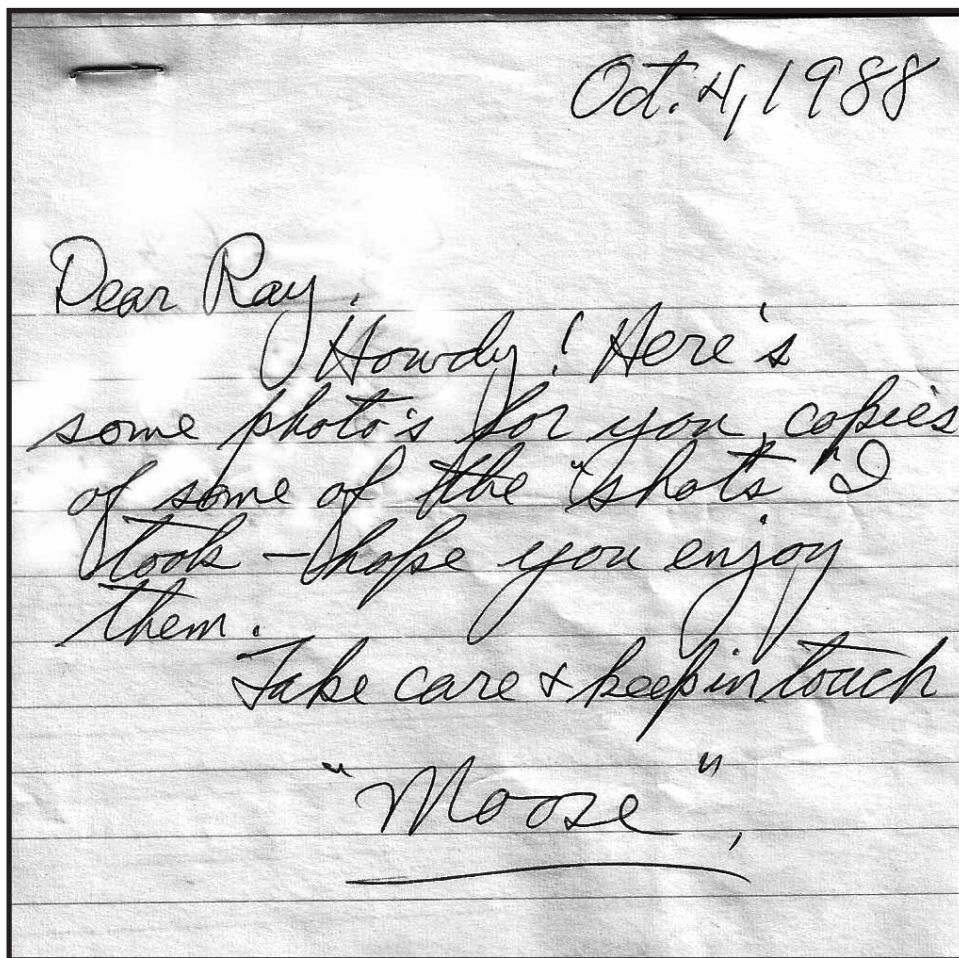 Oct. 4, 1988
Dear Ray,
Howdy! Here's
some photo's for you, copies
of some of the "shots" I
took – hope you enjoy
them.
Take care & keep in touch
"Moose",